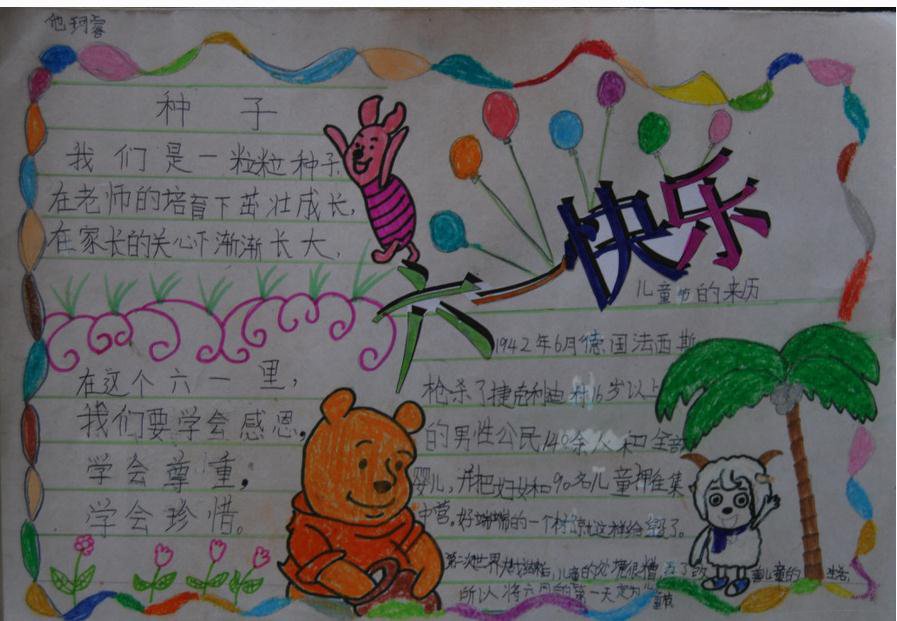 种子
我们是一粒粒种子
在老师的培育下茁壮成长,
在家长的关心下渐渐长大,
在这个六一里,
我们要学会感恩,
学会尊重,
学会珍惜。
六一快乐
儿童节的来历
1942年6月德国法西斯
枪杀了捷克利迪村16岁以上
的男性公民140余人和全部
婴儿,并把妇女和90名儿童押往集
中营。好端端的一个村就这样给毁了。
第二次世界大战结后,儿童的处境很糟为了改 善儿童的生活,
所以将六月的第一天定为儿童节